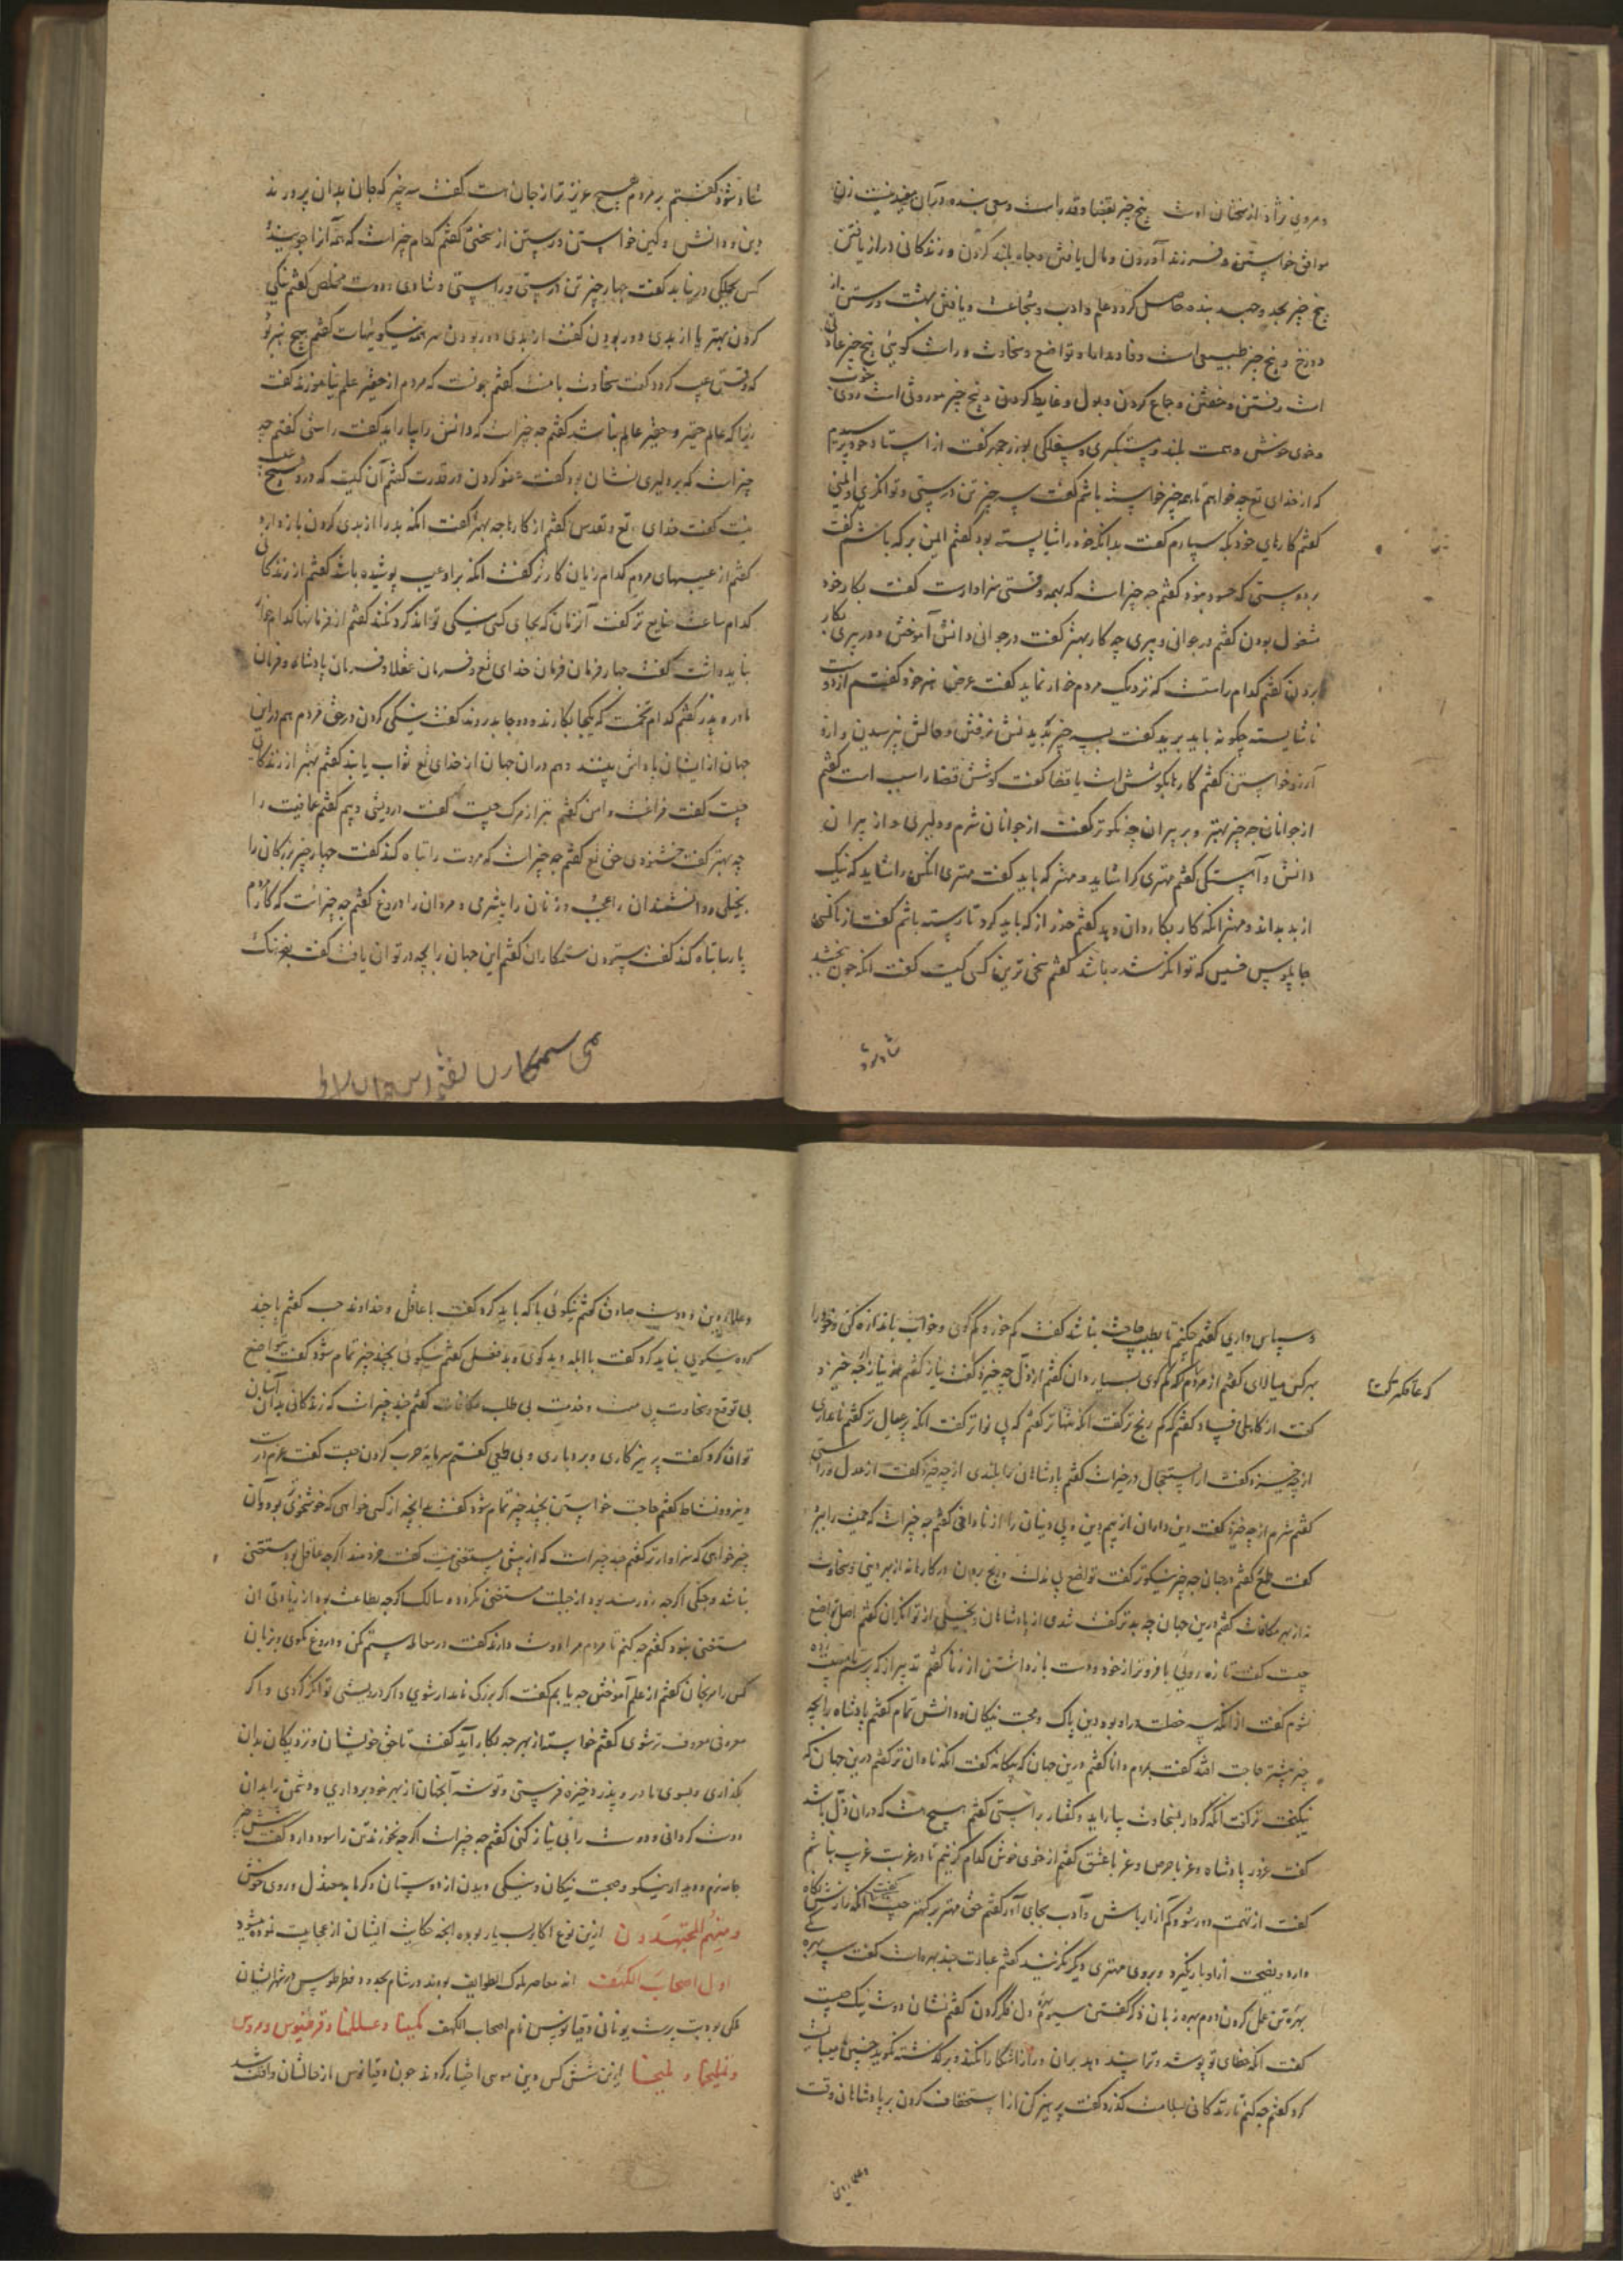 و مروی نژاد از سخنان اوست پنج چیز بقضا و قدر است و سعی بنده در آن مفید نیست زن
موافق خواستن و فرزند آوردن و مال یافتن و جاه بلند کردن و زندکانی دراز یافتن
پنج چیز بجد و جهد بنده حاصل کردد علم و ادب و شجاعت و یافتن بهشت و رستن از
دوزخ و پنج چیز طبیعی است وفا و مدارا و تواضع و سخاوت و راست کوئی پنج چیز عادتی
است رفتن و خفتن و جماع کردن و بول و غایط کردن و پنج چیز موروثی است روی خوب
و خوی خوش و همت بلند و متکبری و سفلکی بوزرجمهر کفت از استاد خود پرسیدم
که از خدای تع چه خواهم تا همه چیز خواسته باشم کفت سه چیز تن درستی و توانکری و ایمنی
کفتم کارهای خود بکه سپارم کفت بدانکه خود را شایسته بود کفتم ایمن بر که باشم کفت
بر دوستی که حسود نبود کفتم چه چیز است که بهمه وقتی سزاوارست کفت بکار خود
مشغول بودن کفتم در جوانی و پیری چه کار بهتر کفت در جوانی دانش آموختن و در پیری بکار
بردن کفتم کدام راست که نزدیک مردم خوار نماید کفت عرض هنر خود کفتم از دوست
ناشایسته چکونه باید برید کفت بسه چیز بدیدنش نرفتن و حالش نپرسیدن و ازو
آرزو خواستن کفتم کارها بکوشش است یا قضا کفت کوشش قضا را سبب است کفتم
از جوانان چه چیز بهتر و بر پیران چه نکوتر کفت از جوانان شرم و دلیری و از پیران
دانش و آهستکی کفتم مهتری کرا شاید و مهتر که باید کفت مهتری آنکس را شاید که نیک
از بد بداند و مهتر آنکه کار بکاردان دهد کفتم حذر از که باید کرد تا رسته باشم کفت از ناکسی
چاپلوس خسیس که توانکر شده باشد کفتم سخی ترین کسی کیست کفت آنکه چون بخشد
شاد شود
شاد شود کفتم بر مردم هیچ عزیزتر از جان هست کفت سه چیز که جان بدان پرورند
دین و دانش و کین خواستن و رستن از سختی کفتم کدام چیز است که همه آنرا جویند و
کس بجملکی در نیابد کفت چهار چیز تن درستی و راستی و شادی و دوست مخلص کفتم نیکی
کردن بهتر یا از بدی دور بودن کفت از بدی دور بودن سر همه نیکویهاست کفتم هیچ هنر بود
که وقتی عیب کردد کفت سخاوت با منت کفتم چونست که مردم از حقیر علم نیاموزند کفت
زیرا که عالم حقیر و حقیر عالم نباشد کفتم چه چیز است که دانش را بیاراید کفت راستی کفتم چه
چیز است که بر دلیری نشان بود کفت عفو کردن در قدرت کفتم آن کیست که درو هیچ عیب
نیست کفت خدای تع و تقدس کفتم از کارها چه بهتر کفت آنکه بد را از بدی کردن باز دارد
کفتم از عیبهای مردم کدام زیان کارتر کفت آنکه برو عیب پوشیده باشد کفتم از زندکانی
کدام ساعت ضایع تر کفت آن زمان که بجای کسی نیکی تواند کرد و نکند کفتم از فرمانها کدام خوار
نباید داشت کفت چهار فرمان فرمان خدای تع و فرمان عقلا و فرمان پادشاه و فرمان
مادر و پدر کفتم کدام تخمست که یکجا بکارند و دو جا بدروند کفت نیکی کردن در حق مردم هم درین
جهان از ایشان پاداش بینند و هم در آن جهان از خدای تع ثواب یابند کفتم بهتر از زندکانی
چیست کفت فراغت و امن کفتم بتر از مرک چیست کفت درویشی و بیم کفتم عاقبت را
چه بهتر کفت خشنودی حق تع کفتم چه چیز است که مروت را تباه کند کفت چهار چیز بزرکان را
بخیلی و دانشمندان را عجب و زنان را بیشرمی و مردان را دروغ کفتم چه چیز است که کار مردم
پارسا تباه کند کفت ستودن ستمکاران کفتم این جهان را بچه در توان یافت کفت بفرهنک
و سپاس داری کفتم چکنم تا بطبیب حاجت نباشد کفت کم خور و کم کوی و خواب باندازه کن و خود را
بهر کس میالای کفتم از مردم که کوی بسیار دان کفتم از ذل چه خیزد کفت نیاز کفتم نیاز از چه خیزد
کفت از کاهلی و فساد کفتم که کم رنج تر کفت آنکه تنهاتر کفتم که بی نواتر کفت آنکه پرعیال تر کفتم نامداری
از چه خیزد کفت از استعجال در خیرات کفتم پادشاهان را بلندی از چه خیزد کفت از عدل و راستی
کفتم شرم از چه خیزد کفت دین داران از بیم دین و بی دینان را از نادانی کفتم چه چیز است که حمیت را ببرد
کفت طمع کفتم در جهان چه چیز نیکوتر کفت تواضع بی مذلت و رنج بردن در کارها نه از بهر دینی و سخاوت
نه از بهر مکافات کفتم درین جهان چه بدتر کفت تندی از پادشاهان و بخیلی از توانکران کفتم اصل تواضع
چیست کفت تازه رویی با فروتر از خود و دست بازداشتن از زنا کفتم تدبیر از که پرسم تا مصیبت زده
نشوم کفت از آنکه سه خصلت درو بود دین پاک و محبت نیکان و دانش تمام کفتم پادشاه را بچه
چیز بیشتر حاجت افتد کفت بمردم دانا کفتم درین جهان که بیکانه کفت آنکه نادان تر کفتم درین جهان که
نیکبخت تر کفت آنکه کردار بسخاوت بیاراید و کفتار براستی کفتم هیچ هست که در آن ذل باشد
کفت عزور پادشاه و عز با حرص و عز با عشق کفتم از خوی خوش کدام کزینم تا در غربت غریب نباشم
کفت از تهمت دور شو و کم آزار باش و آدب بجای آور کفتم حق مهتر بر کهتر چیست کفت آنکه رازش نکاه
دارد و نصیحت ازو باز نکیرد و بروی مهتری دیکر نکزیند کفتم عبادت چند بهره است کفت سه بهره
بهره تن عمل کردن دوم بهره زبان ذکر کفتن سیوم بهره دل فکر کردن کفتم نشان دوست نیک چیست
کفت آنکه خطای تو پوشد و ترا پند دهد و راز آشکارا نکند و بر کذشته نکوید چنین میبایست
کرد کفتم چه کنم تا زندکانی بسلامت کذرد کفت پرهیز کن از استخفاف کردن بر پادشاهان وقت
و علمای دین
و علمای دین و دوست صادق کفتم نیکوئی با که باید کرد کفت با عاقل و خداوند حسب کفتم با چند
کروه نیکویی نباید کرد کفت با ابله و بدکوی و بد فعل کفتم نیکوئی بچند چیز تمام شود کفت بتواضع
بی توقع و سخاوت بی منت و خدمت بی طلب مکافات کفتم چند چیز است که زندکانی بدان آسان
توان کرد کفت پرهیزکاری و بردباری و بی طمعی کفتم سرمایه حرب کردن چیست کفت عزم درست
و نیرو و نشاط کفتم حاجت خواستن بچند چیز تمام شود کفت بآنچه از کسی خواهی که خوشخوی بود و آن
چیز خواهی که سزاوارتر کفتم چند چیز است که از بیشی مستغنی نیست کفت خردمند اکرچه عاقل بود مستغنی
نباشد و جنکی اکرچه زورمند بود از حیلت مستغنی نکردد و سالک اکرچه بطاعت بود از زیادتی آن
مستغنی نبود کفتم چه کنم تا مردم مرا دوست دارند کفت در معامله ستم مکن و دروغ مکوی و بزبان
کس را مرنجان کفتم از علم آموختن چه یابم کفت اکر بزرکی نامدار شوی و اکر درویشی توانکر کردی و اکر
معروفی معروف تر شوی کفتم خواسته از بهر چه بکار آید کفت تا حق خویشان و نزدیکان بدان
بکذاری و بسوی مادر و پدر ذخیره فرستی و توشه آنجهان از بهر خود برداری و دشمن را بدان
دوست کردانی و دوست را بی نیاز کنی کفتم چه چیز است اکرچه نخورند تن را سود دارد کفت شش چیز
جامه نرم و دیدار نیکو و صحبت نیکان و نیکی دیدن از دوستان و کرمابه معتدل و روی خوش
ومنهم المجتهدون ازین نوع اکابر بسیار بوده آنچه حکایت ایشان از عجایبست نموده میشود
اول اصحاب الکهف اند معاصر ملوک الطوایف بودند در شام بحدود طرطوس در شهر ایشان
ملکی بود بت پرست یونانی دقیانوس نام اصحاب الکهف
این شش کس دین موسی اختیار کردند چون دقیانوس از حالشان واقف شد